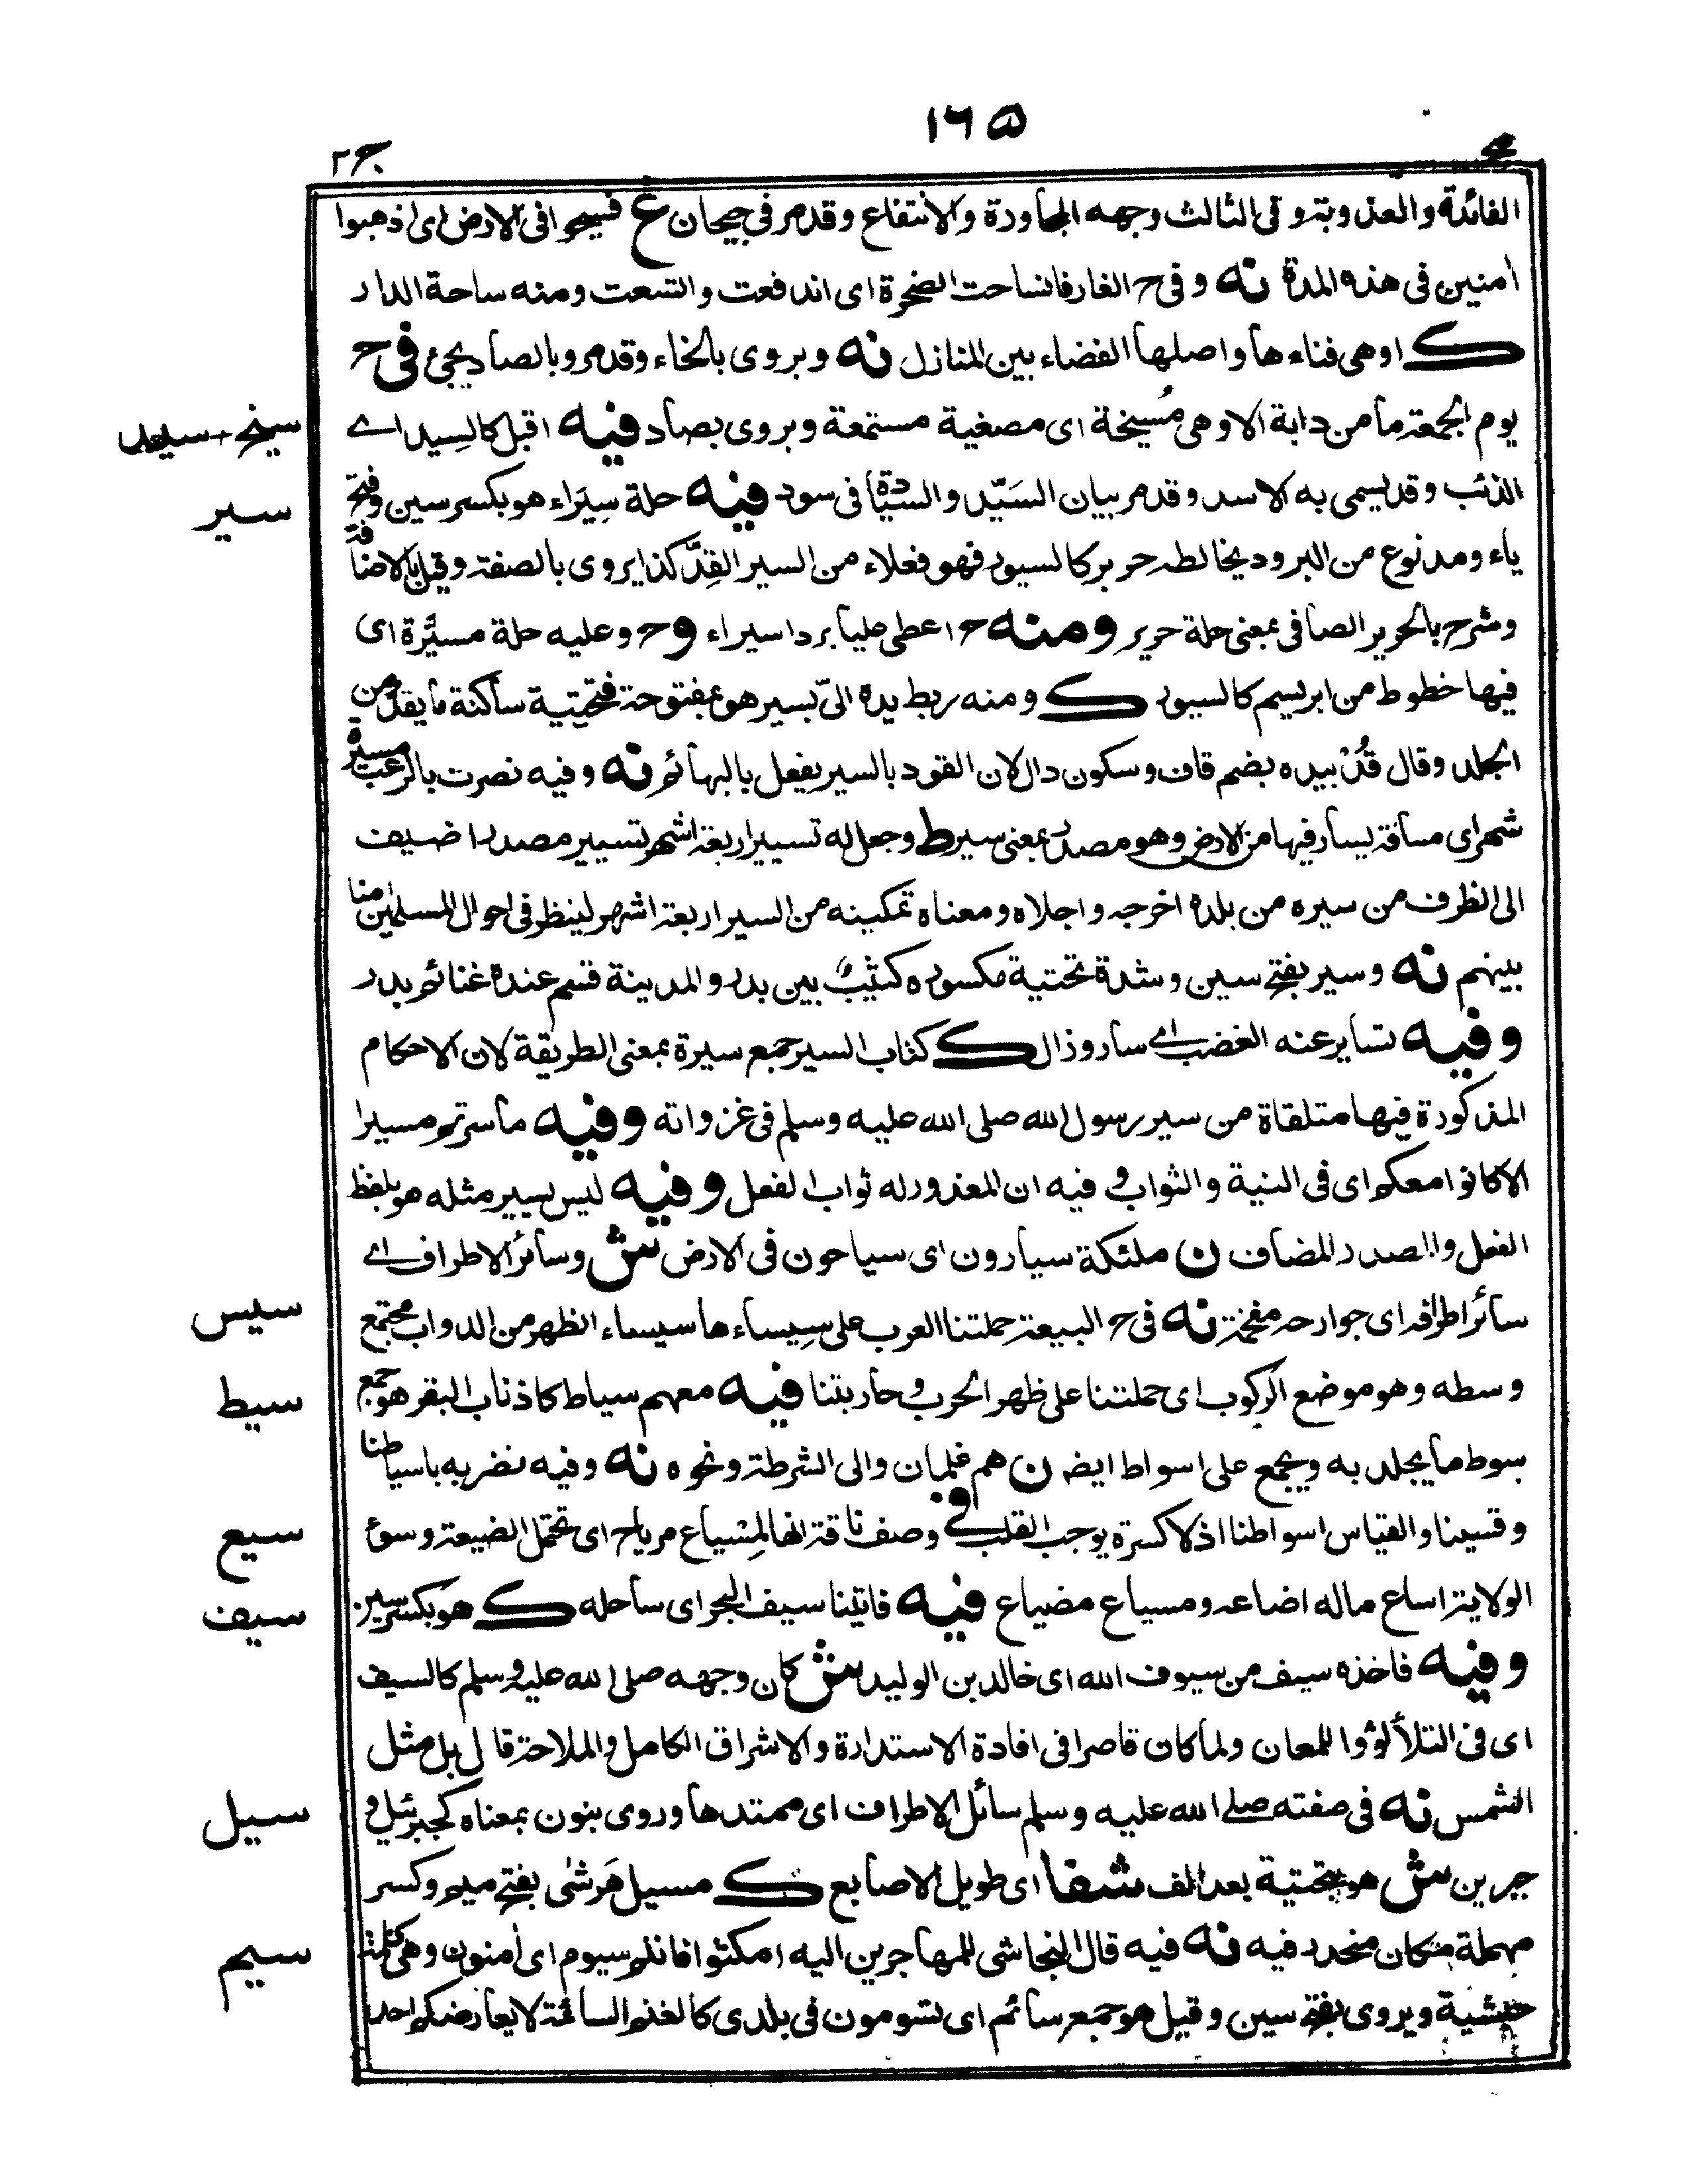 ١٦٥
ج٢
الفائدة والعذوبة وفى الثالث وجهه المجاورة والانتفاع وقد مر فى جيحان غ فسيحوا فى الارض اى اذهبوا
أمنين فى هذه المدة نه وفى ح الغار فانساحت الصخرة اى اندفعت واتسعت ومنه ساحة الدار
ك اوهى فناءها واصلها الفضاء بين المنازل نه ويروى بالخاء وقد مر وبالصاد يجئ فى ح
يوم الجمعة ما من دابة الا وهى مُسيخة اى مصغية مستمعة ويروى بصاد فيه اقبل كالسِيد اے
سيخ - سيد
الذئب وقد يسمى به الاسد وقد مر بيان السَيّد والسيادة فى سود فيه حلة سِيَراء هو بكسر سين وفتح
سير
ياء ومد نوع من البرود يخالطه حرير كالسيور فهو فعلاء من السير القِدّ كذا يروى بالصفة وقيل بالاضافة
وشرح بالحرير الصافى بمعنى حلة حرير ومنه ح اعطى عليا بردا سيراء وح وعليه حلة مسيَّرة اى
فيها خطوط من ابريسم كالسيور ك ومنه ربط يده الىّ بسير هو بمفتوحة فتحتية ساكنة ما يقد من
الجلد وقال قُدْ بيده بضم قاف وسكون دال لان القود بالسير يفعل بالبهائم نه وفيه نصرت بالرعب مسيرة
شهر اى مسافة يسار فيها من الارض وهو مصدر بمعنى سير ط وجعل له تسيير اربعة اشهر تسيير مصدر اضيف
الى الظرف من سيره من بلده اخرجه واجلاه ومعناه تمكينه من السير اربعة اشهر لينظر فى احوال المسلمين امنا
بينهم نه وسير بفتح سين وشدة تحتية مكسوره كثيب بين بدر والمدينة قسم عنده غنائم بدر
وفيه تساير عنه الغضب اے سار وزال ك كتاب السير جمع سيرة بمعنى الطريقة لان الاحكام
المذكورة فيها متلقاة من سير رسول الله صلى الله عليه وسلم فى غزواته وفيه ما سرتم مسيرا
الا كانوا معكم اى فى النية والثواب و فيه ان المعذور له ثواب الفعل وفيه ليس يسير مثله هو بلفظ
الفعل والمصدر المضاف ن ملئكة سيارون اى سياحون فى الارض ش وسائر الاطراف اے
سائر اطرافه اى جوارحه مفخمة نه فى ح البيعة حملتنا العرب على سِيساءها سيساء الظهر من الدواب مجتمع
سيس
وسطه وهو موضع الركوب اى حملتنا على ظهر الحرب و حاربتنا فيه معهم سياط كاذناب البقر هو جمع
سيط
سوط ما يجلد به ويجمع على اسواط ايضه ن هم غلمان والى الشرطة ونحوه نه وفيه نضربه باسياطنا
وقسينا والقياس اسواطنا اذ لا كسرة يوجب القلب فى وصف ناقة انها لمِسْياع مرياح اى تحتمل الضيعة وسوء
سيع
الولاية اساع ماله اضاعه ومسياع مضياع فيه فاتينا سيف البحر اى ساحله ك هو بكسر سين
سيف
وفيه فاخذه سيف من سيوف الله اى خالد بن الوليد ش كان وجهه صلى الله عليه وسلم كالسيف
اى فى التلألؤ واللمعان ولما كان قاصرا فى افادة الاستدارة والاشراق الكامل والملاحة قال بل مثل
الشمس نه فى صفته صلے الله عليه وسلم سائل الاطراف اى ممتدها وروى بنون بمعناه كجبرئيل و
سيل
جبرين ش هو بتحتية بعد الف شفا اى طويل الاصابع ك مسيل هَرشٰى بفتح ميم وكسر
مهملة مكان منحدر فيه نه فيه قال النجاشى للمهاجرين اليه امكثوا فانتم سيوم اى أمنون وهى كلمة
سيم
حبشية ويروى بفتح سين وقيل هو جمع سائم اى تسومون فى بلدى كالغنم السائمة لا يعارضكم احد